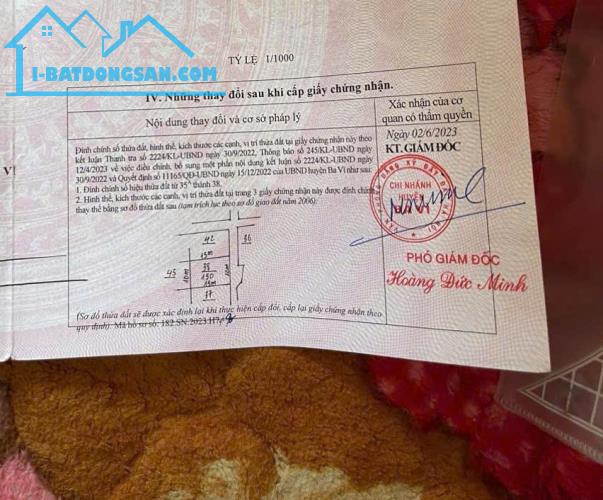 I-BATDONGSAN.COM
TỶ LỆ 1/1000
IV. Những thay đổi sau khi cấp giấy chứng nhận.
Nội dung thay đổi và cơ sở pháp lý
Xác nhận của cơ
quan có thẩm quyền
Đính chính số thửa đất, hình thể, kích thước các cạnh, vị trí thửa đất tại giấy chứng nhận này theo
kết luận Thanh tra số 2224/KL-UBND ngày 30/9/2022, Thông báo số 245/KL-UBND ngày
12/4/2023 về việc điều chỉnh, bổ sung một phần nội dung kết luận số 2224/KL-UBND ngày
30/9/2022 và Quyết định số 11165/QĐ-UBND ngày 15/12/2022 của UBND huyện Ba Vì như sau:
1. Đính chính số hiệu thửa đất từ 35A thành 38.
2. Hình thể, kích thước các cạnh, vị trí thửa đất tại trang 3 giấy chứng nhận này được đính chính
thay thế bằng sơ đồ thửa đất sau (tạm trích lục theo sơ đồ giao đất năm 2006):
Ngày 02/6/2023
KT.GIÁM ĐỐC
CHI NHÁNH
HUYỆN
PHÓ GIÁM ĐỐC
Hoàng Đức Minh
42
36
15m
45
10m
38
150
10m
15m
37
(Sơ đồ thửa đất sẽ được xác định lại khi thực hiện cấp đổi, cấp lại giấy chứng nhận theo
quy định). Mã hồ sơ số: 182.SN.2023.